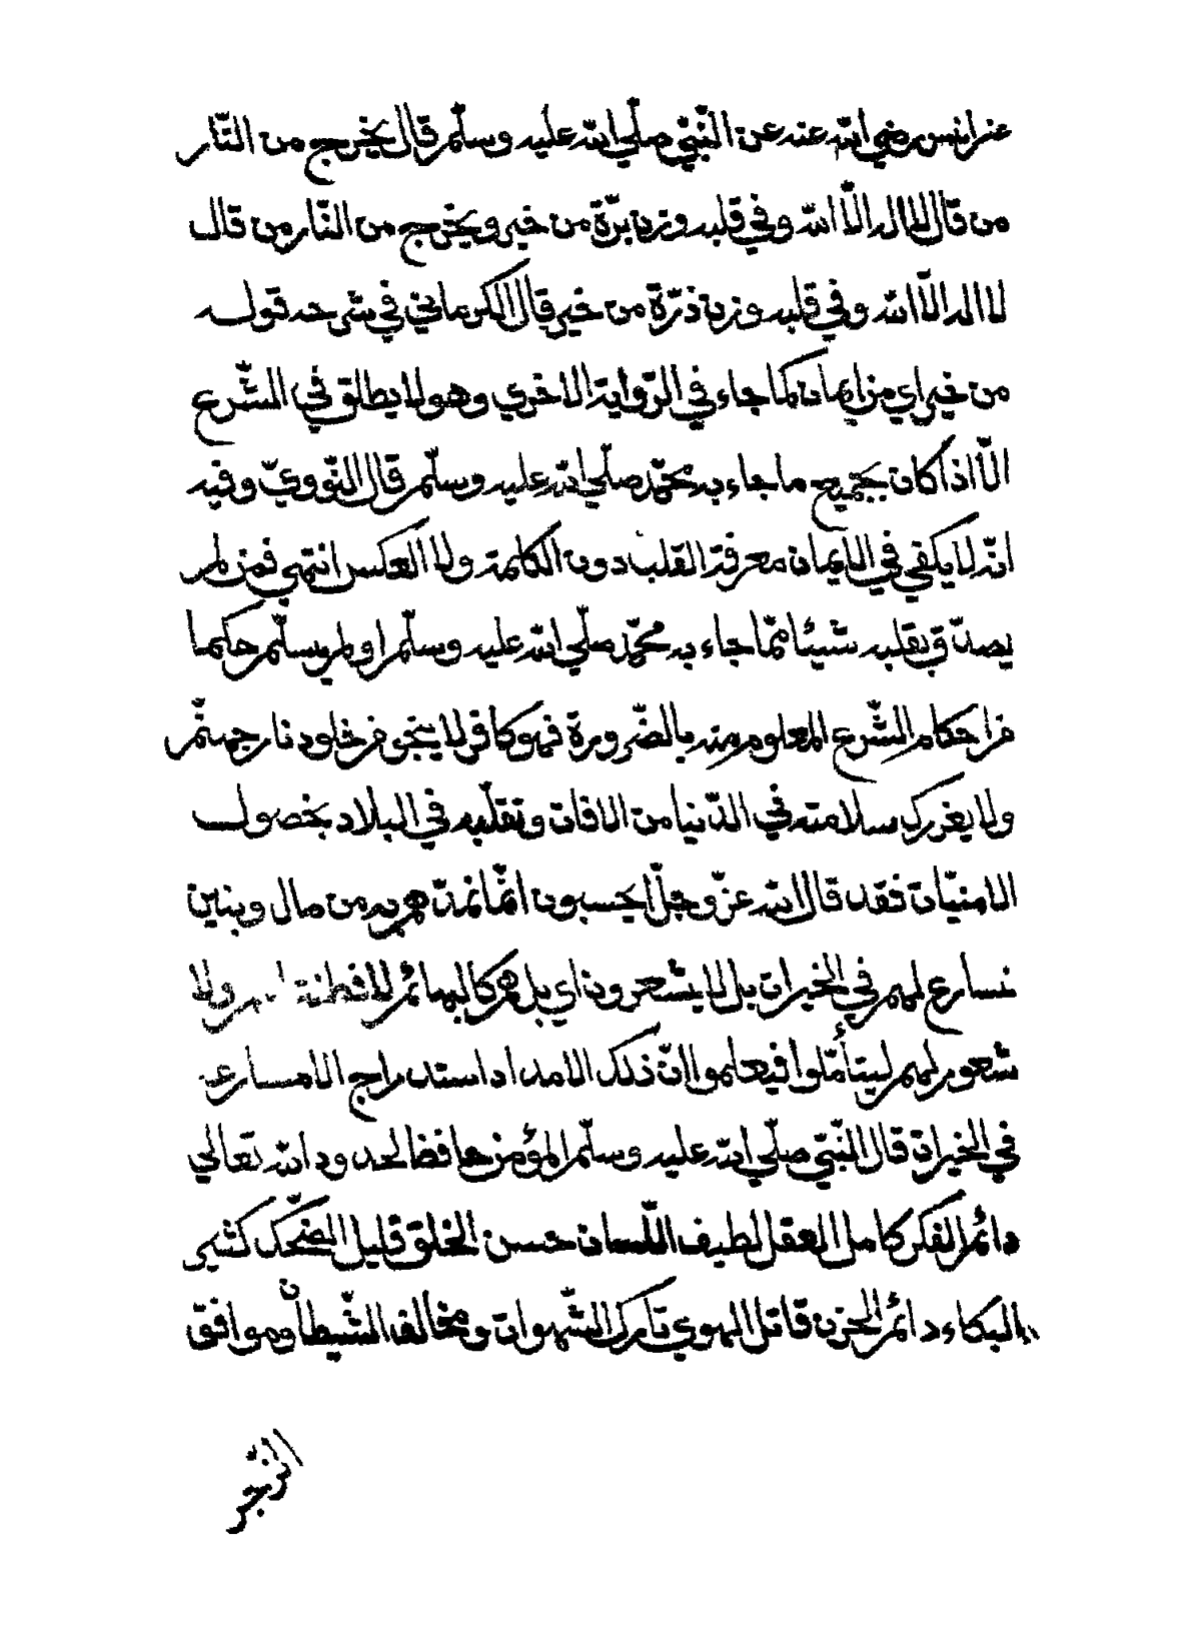 عن انس رضي الله عنه عن النّبيّ صلّي الله عليه وسلّم قال يخرج من النّار
من قال لا اله الّا الله وفي قلبه وزن برّة من خير ويخرج من النّار من قال
لا اله الّا الله وفي قلبه وزن ذرّة من خير قال الكرماني في شرحه قوله
من خير اي من ايمان كما جاء في الرّواية الاخري وهو لا يطلق في الشّرع
الّا اذا كان بجميع ما جاء به محمّد صلّي الله عليه وسلّم قال النّوويّ وفيه
انّه لا يكفي في الايمان معرفة القلب دون الكلمة ولا العكس انتهي فمن لم
يصدّق بقلبه شيئا ممّا جاء به محمّد صلّي الله عليه وسلّم او لم يسلّم حكما
من احكام الشّرع المعلوم منه بالضّرورة فهو كافر لا ينجو من خلود نار جهنّم
ولا يغررك سلامته في الدّنيا من الافات وتقلّبه في البلاد بحصول
الامنيّات فقد قال الله عزّ وجلّ ايحسبون انّما نمدّهم به من مال وبنين
نسارع لهم في الخيرات بل لا يشعرون اي بل هم كالبهائم لا فطنة لهم ولا
شعور لهم ليتأمّلوا فيعلموا انّ ذلك الامداد استدراج لا مسارعة
في الخيرات قال النّبيّ صلّي الله عليه وسلّم المؤمن حافظا لحدود الله تعالي
دائم الفكر كامل العقل لطيف اللّسان حسن الخلق قليل الضّحك كثير
البكاء دائم الحزن قاتل الهوي تارك الشّهوات ومخالف الشّيطان وموافق